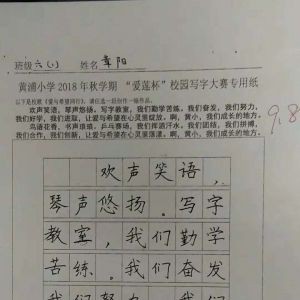 班级 六（1） 姓名 章阳
黄浦小学 2018 年秋学期 “爱莲杯”校园写字大赛专用纸
以下是校歌《爱与希望同行》，请任选一段创作一幅作品。
欢声笑语，琴声悠扬。写字教室，我们勤学苦练。我们奋发，我们努力，
我们好学，我们进取，让爱与希望在心灵里绽放。啊，黄小，我们成长的地方。
鸟语花香，书声琅琅。乒乓赛场，我们挥洒汗水。我们团结，我们拼搏，
我们合作，我们创新，让爱与希望在心灵里荡漾。啊，黄小，我们成长的地方。
9.8
欢声笑语，
琴声悠扬。写字
教室，我们勤学
苦练。我们奋发
我们努力，我们